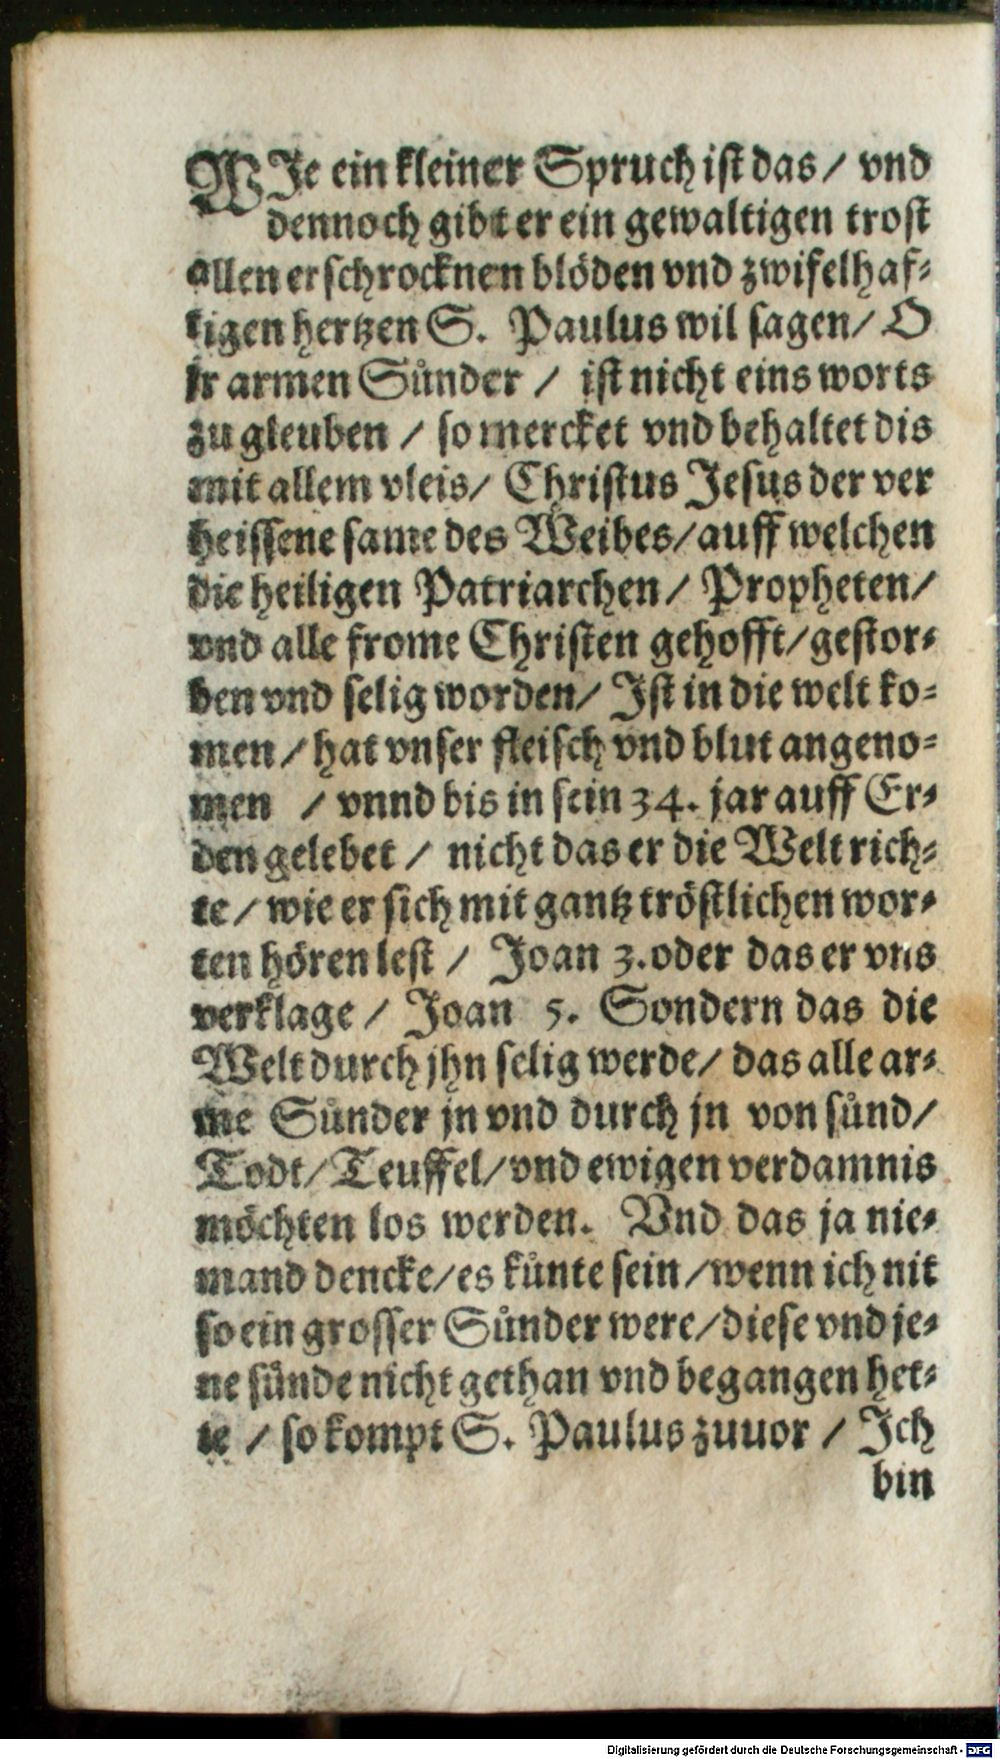 WJe ein kleiner Spruch ist das / vnd
dennoch gibt er ein gewaltigen trost
allen erschrocknen blöden vnd zwifelhaf-
tigen hertzen S. Paulus wil sagen / O
jr armen Sůnder / ist nicht eins worts
zu gleuben / so mercket vnd behaltet dis
mit allem vleis / Christus Jesus der ver
heissene same des Weibes / auff welchen
die heiligen Patriarchen / Propheten /
vnd alle frome Christen gehofft / gestor-
ben vnd selig worden / Jst in die welt ko-
men / hat vnser fleisch vnd blut angeno-
men / vnnd bis in sein 34. jar auff Er-
den gelebet / nicht das er die Welt rich-
te / wie er sich mit gantz tröstlichen wor-
ten hören lest / Joan 3. oder das er vns
verklage / Joan 5. Sondern das die
Welt durch jhn selig werde / das alle ar-
me Sůnder jn vnd durch jn von sůnd /
Todt / Teuffel / vnd ewigen verdamnis
möchten los werden. Vnd das ja nie-
mand dencke / es kůnte sein / wenn ich nit
so ein grosser Sůnder were / diese vnd je-
ne sünde nicht gethan vnd begangen het-
te / so kompt S. Paulus zuuor / Jch
bin
Digitalisierung gefördert durch die Deutsche Forschungsgemeinschaft - DFG